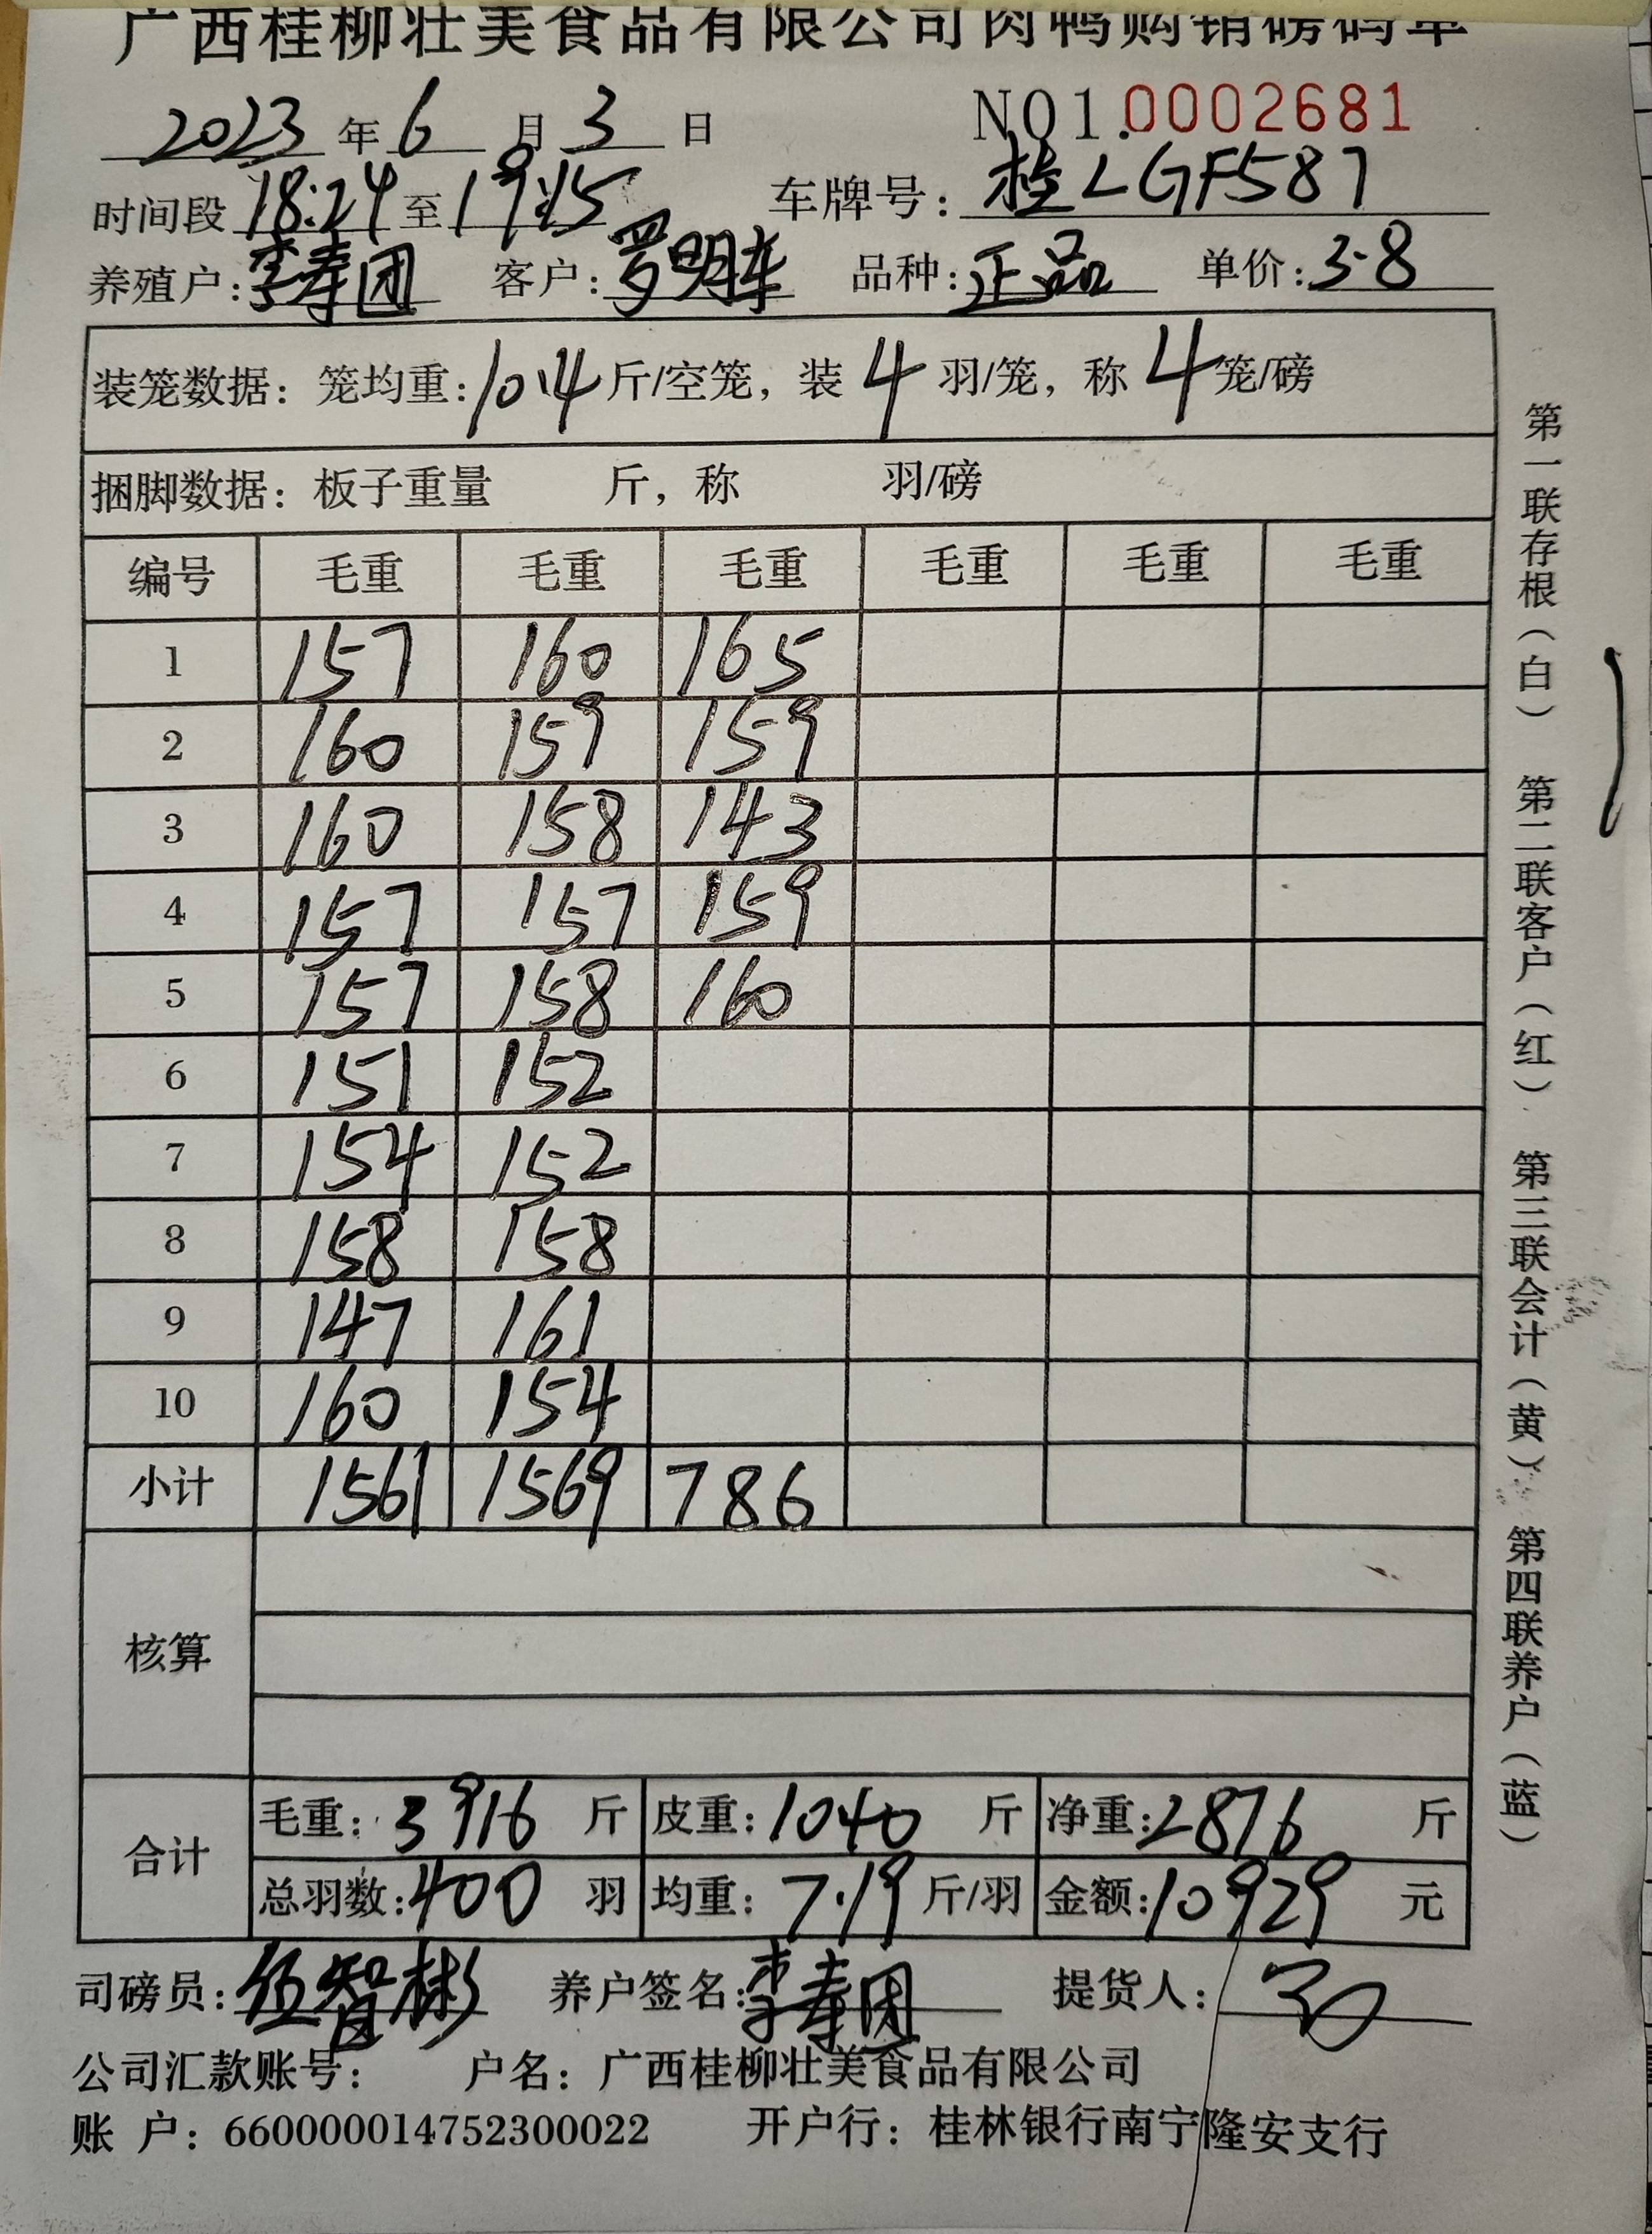 广西桂柳壮美食品有限公司肉鸭购销磅码单
2023年6月3日 NO1.0002681
时间段18:24至19:15 车牌号：桂LGF587
养殖户：李寿团 客户：罗明车 品种：正品 单价：3.8
装笼数据：笼均重：10.4斤/空笼，装4羽/笼，称4笼/磅
捆脚数据：板子重量 斤，称 羽/磅
编号 毛重 毛重 毛重 毛重 毛重 毛重
1 157 160 165
2 160 159 159
3 160 158 143
4 157 157 159
5 157 158 160
6 151 152
7 154 152
8 158 158
9 147 161
10 160 154
小计 1561 1569 786
核算
合计
毛重：3916斤 皮重：1040斤 净重：2876斤
总羽数：400羽 均重：7.19斤/羽 金额：10929元
司磅员：伍智彬 养户签名：李寿团 提货人：
公司汇款账号： 户名：广西桂柳壮美食品有限公司
账 户：660000014752300022 开户行：桂林银行南宁隆安支行
第一联存根（白） 第二联客户（红） 第三联会计（黄） 第四联养户（蓝）